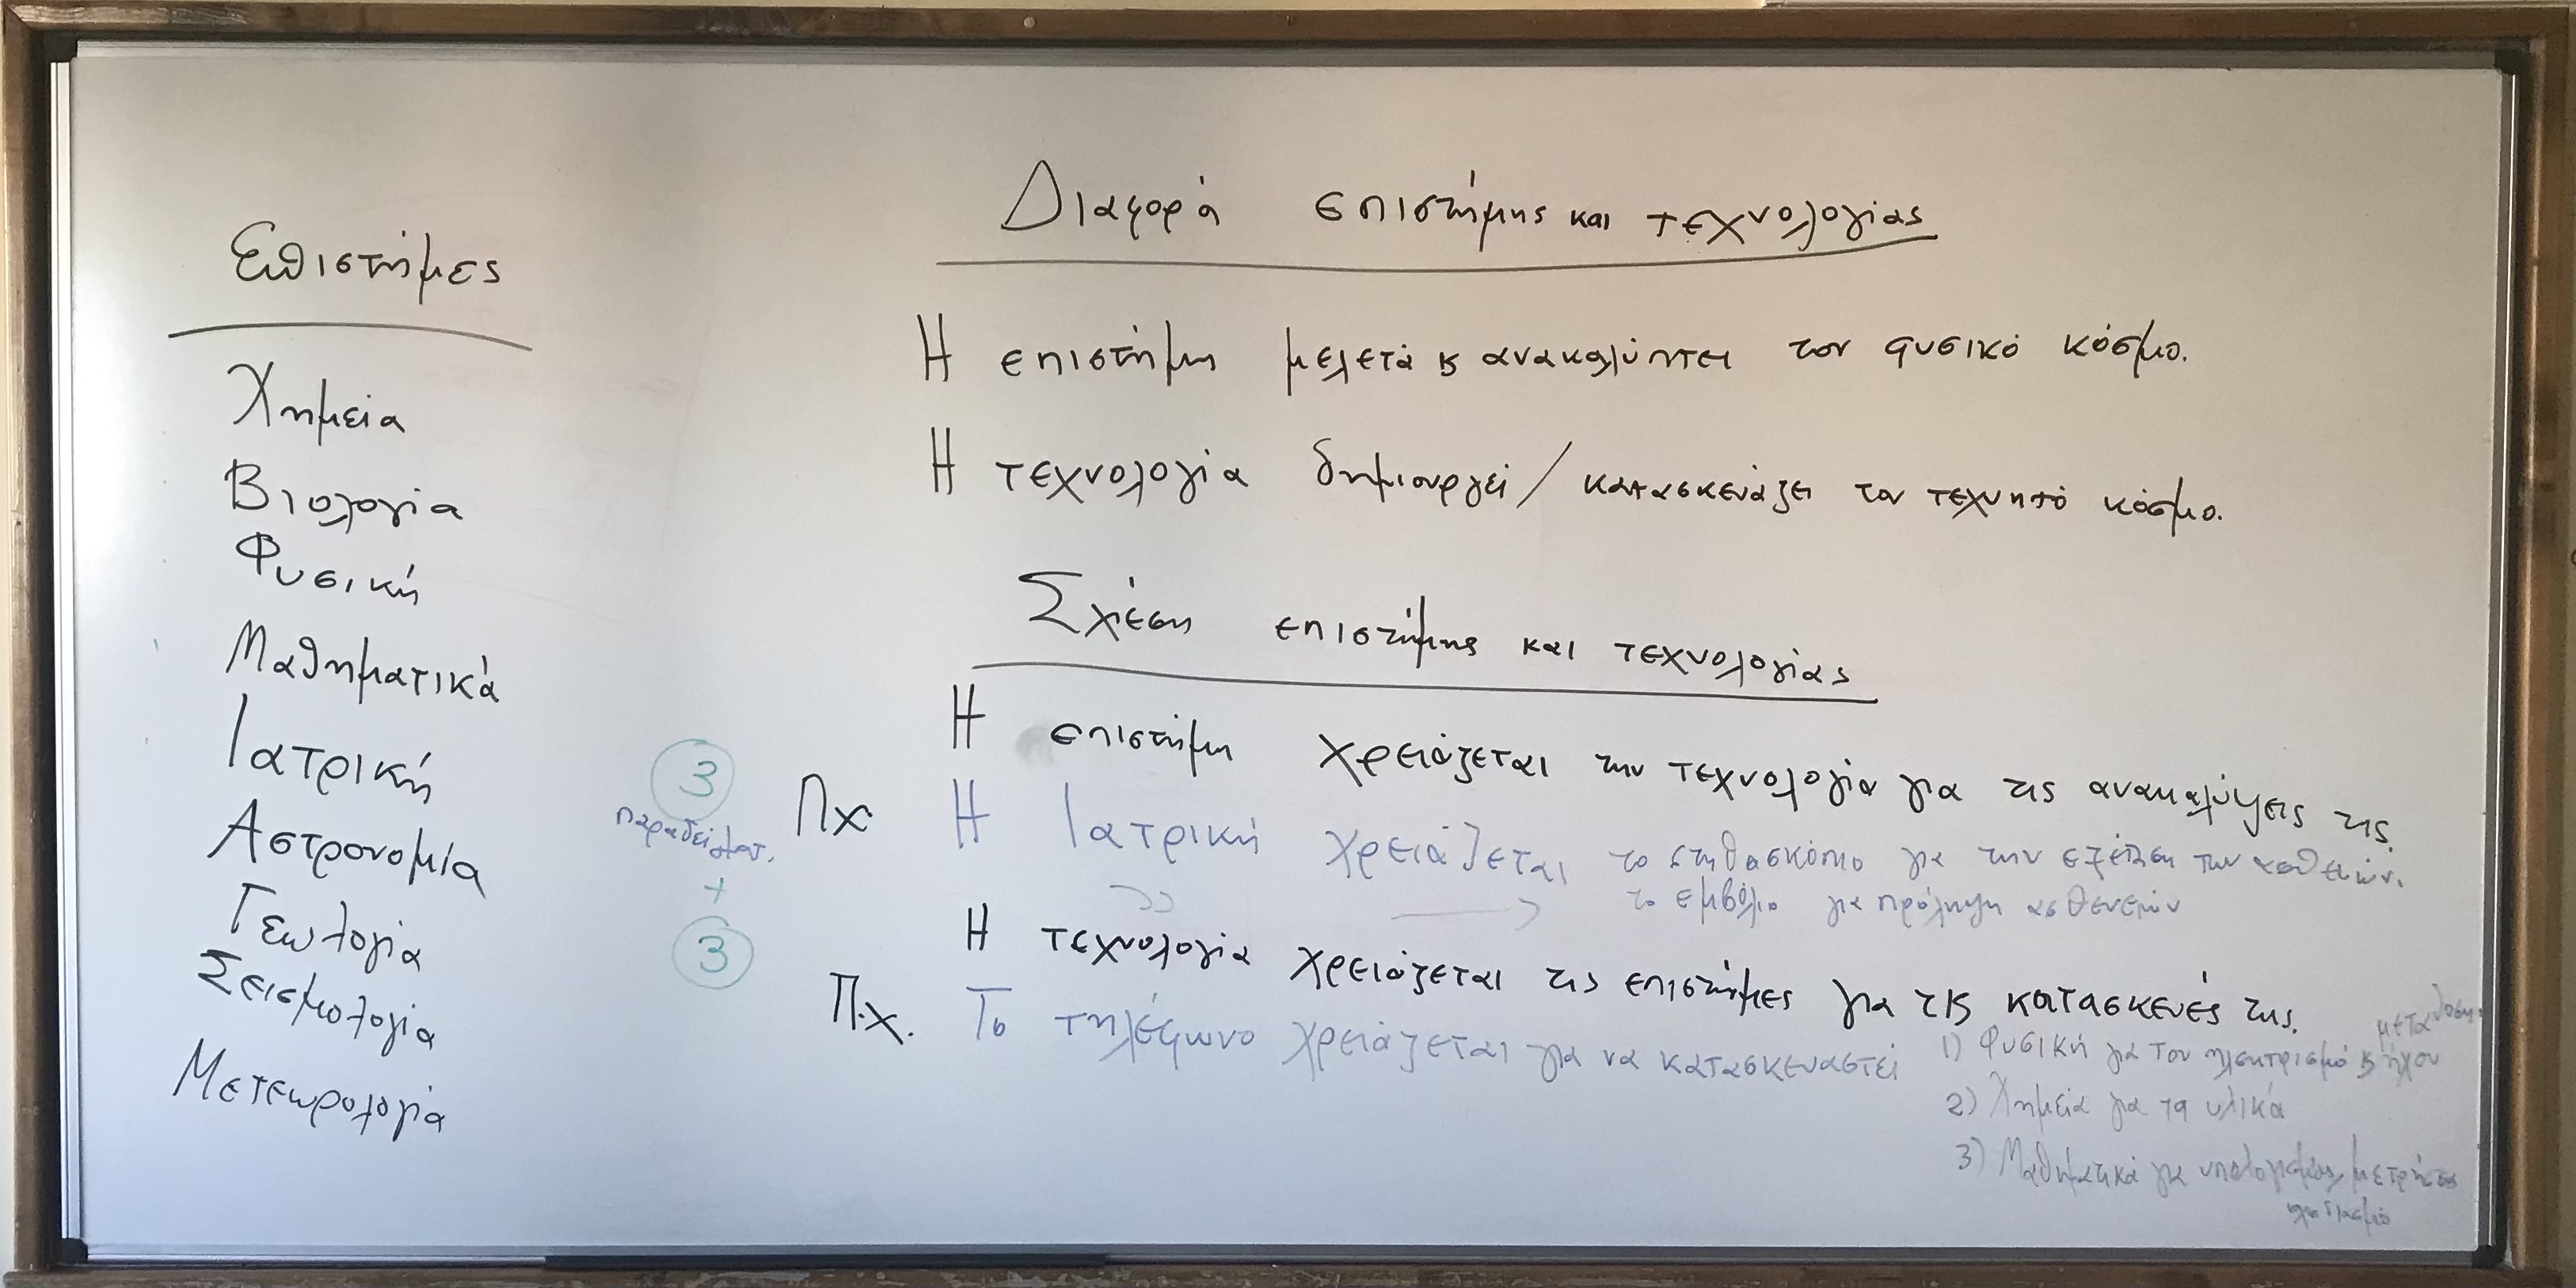 Επιστήμες
Χημεία
Βιολογία
Φυσική
Μαθηματικά
Ιατρική
Αστρονομία
Γεωλογία
Σεισμολογία
Μετεωρολογία
3
παραδείγματ.
+
3
Διαφορά επιστήμης και τεχνολογίας
Η επιστήμη μελετά ϗ ανακαλύπτει τον φυσικό κόσμο.
Η τεχνολογία δημιουργεί / κατασκευάζει τον τεχνητό κόσμο.
Σχέση επιστήμης και τεχνολογίας
Η επιστήμη χρειάζεται την τεχνολογία για τις ανακαλύψεις της.
Πχ Η Ιατρική χρειάζεται το στηθοσκόπιο για την εξέταση των ασθενών.
το εμβόλιο για πρόληψη ασθενειών
Η τεχνολογία χρειάζεται τις επιστήμες για τις κατασκευές της.
Π.χ. Το τηλέφωνο χρειάζεται για να κατασκευαστεί
1) Φυσική για τον ηλεκτρισμό ϗ ήχου
2) Χημεία για τα υλικά
3) Μαθηματικά για υπολογισμούς, μετρήσεις